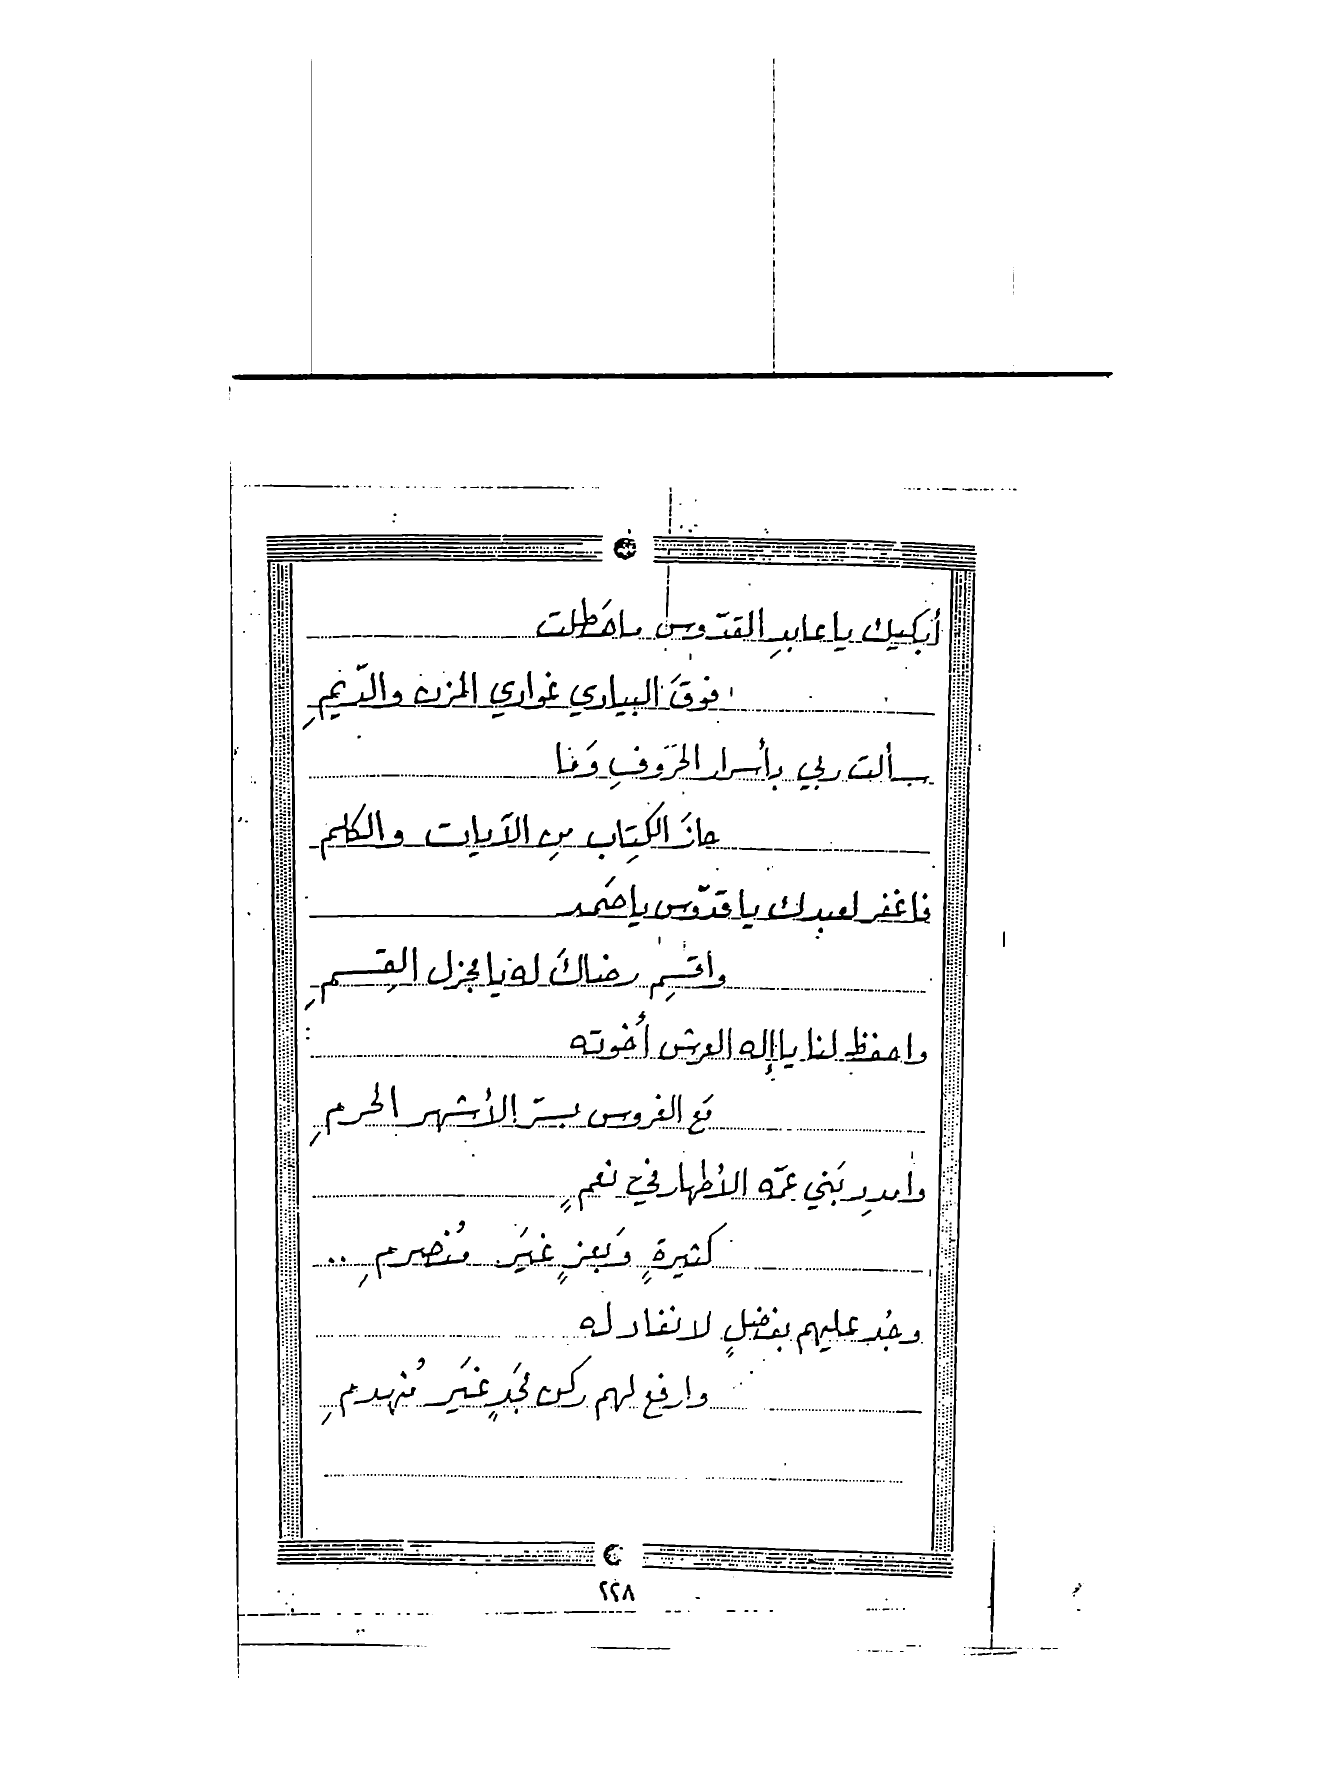 أبكيك يا عابدِ القدّوس ما هَطلت
فوقَ البياري غواري المزن والدّيمِ
سألت ربي بأسرار الحَروفِ وَمَا
حازَ الكِتاب مِن الآيات والكلم
فاغفر لعبدك يا قدّوس يا صَمد
واقسِم رضاكَ له يا مجزل القِسمِ
واحفظ لنا يا إله العرش أخوته
مَع الغروس بسرّ الأشهر الحرمِ
وامددِ بَني عمّه الأطهار في نعمٍ
كثيرةٍ وَبعزٍ غيَر مُنصرمِ ..
وجُد عليهم بفضلٍ لا نفاد له
وارفع لهم ركن مجَدٍ غيَر مُنهدمِ
٢٢٨